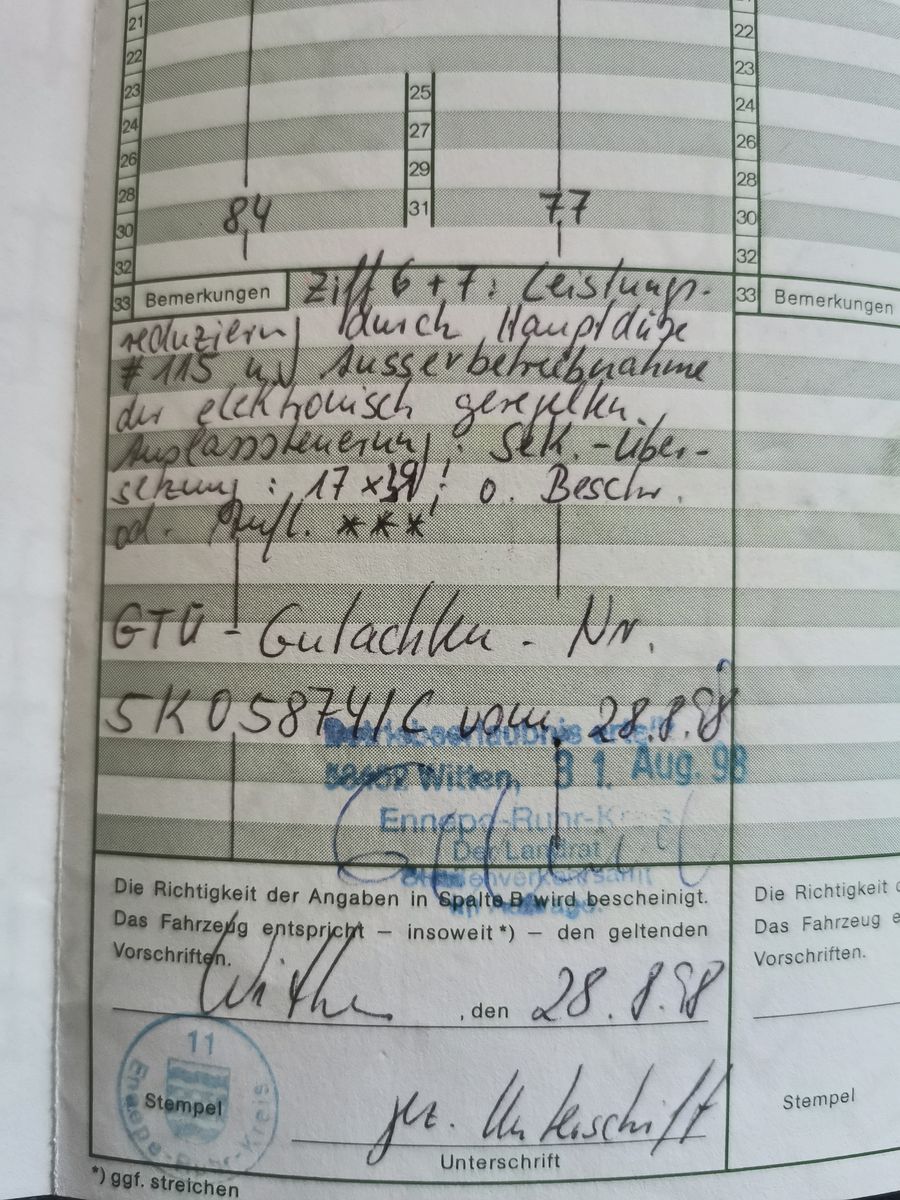 21
22
22
23
23
25
24
24
27
26
26
29
28
28
31
30
30
8,4
7,7
32
32
33 Bemerkungen Ziff 6 + 7: Leistungs-
33 Bemerkungen
reduzierung durch Hauptdüse
# 115 u. Ausserbetriebnahme
der elektronisch geregelten
Auslasssteuerung; Sek.-Über-
setzung: 17 x 39! o. Beschr.
od. Aufl. ***
GTÜ - Gutachten - Nr.
SK058741C vom 28.8.98
Betriebserlaubnis erteilt
58452 Witten, 31. Aug. 98
Ennepe-Ruhr-Kreis
Der Landrat
Straßenverkehrsamt
Die Richtigkeit der Angaben in Spalte B wird bescheinigt.
Das Fahrzeug entspricht – insoweit *) – den geltenden
Vorschriften.
Witten, den 28.8.98
11
Ennepe-Ruhr-Kreis
Stempel
gez. Unterschrift
Unterschrift
*) ggf. streichen
Die Richtigkeit
Das Fahrzeug
Vorschriften.
Stempel